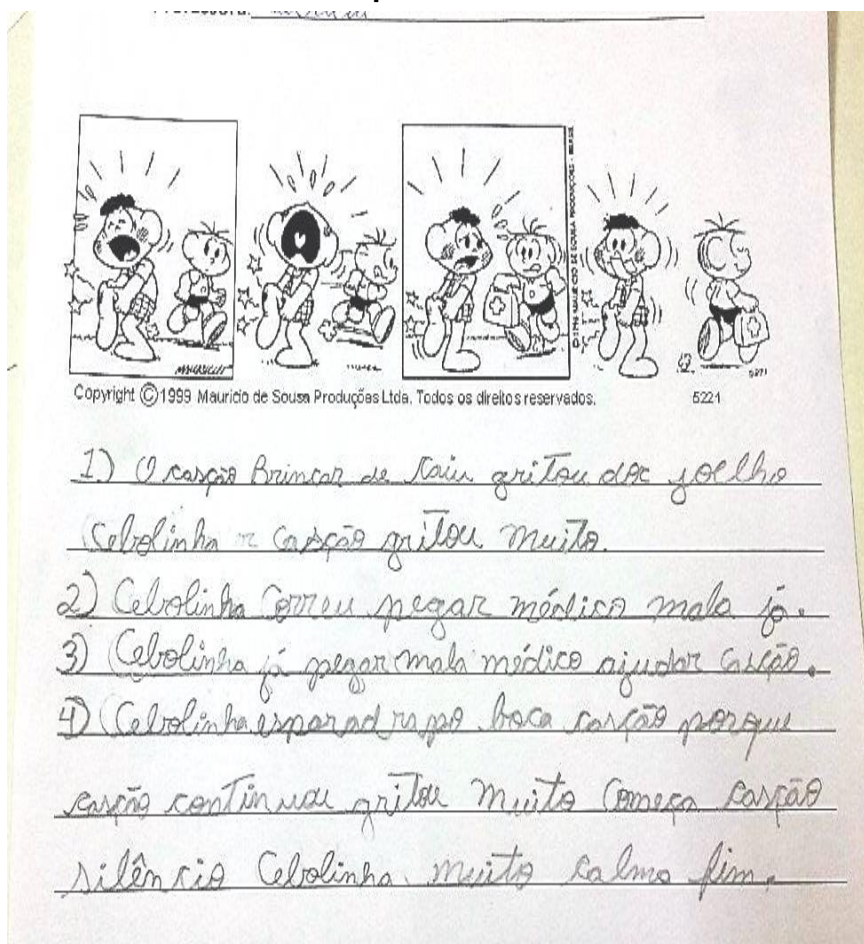 Professora:
MAURICIO
© 1999 MAURICIO DE SOUSA PRODUÇÕES - BRASIL
5221
Copyright ©1999 Mauricio de Sousa Produções Ltda. Todos os direitos reservados. 5221
1) O casção Brincar de caiu gritou doc joelho
Cebolinha casção gritou muito.
2) Cebolinha correu pegar médico mala já.
3) Cebolinha já pegar mala médico ajudar casção.
4) Cebolinha esparadrapo boca casção porque
casção continuou gritou muito começa casção
silêncio Cebolinha muito calmo fim.